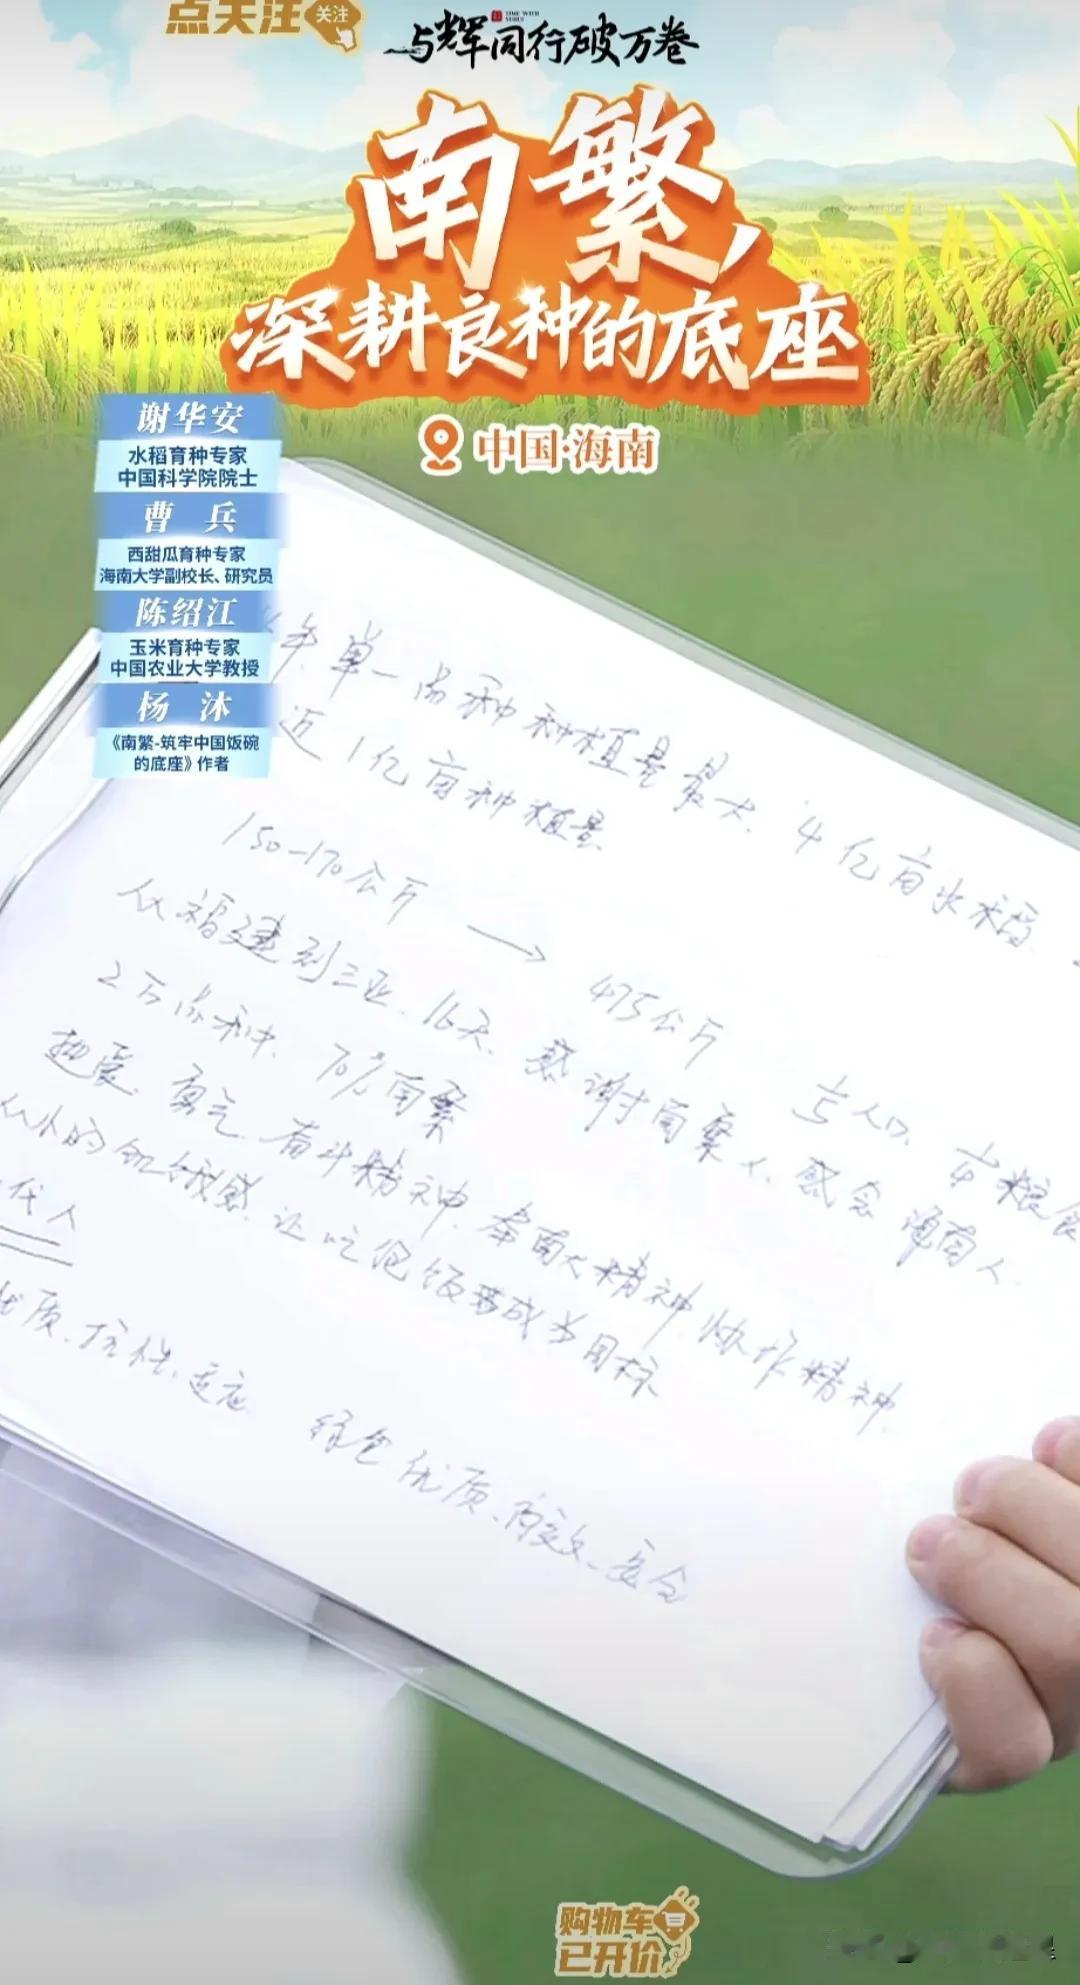 点关注
关注
TIME WITH YUHUI
与辉同行破万卷
南繁,
深耕良种的底座
中国·海南
谢华安
水稻育种专家
中国科学院院士
曹 兵
西甜瓜育种专家
海南大学副校长、研究员
陈绍江
玉米育种专家
中国农业大学教授
杨 沐
《南繁-筑牢中国饭碗
的底座》作者
年单一品种种植最大、4亿亩水稻
近1亿亩种植
150-170公斤 → 475公斤 与人口、粮食
从福建到三亚、16天、感谢南繁人、感念海南人
2万品种、70%南繁
热爱、勇气、奋斗精神、南大精神、协作精神
从小的饥饿感、让吃饱饭成为目标
代人
优质、抗性、适应 绿色优质、高效、安全
购物车
已开价